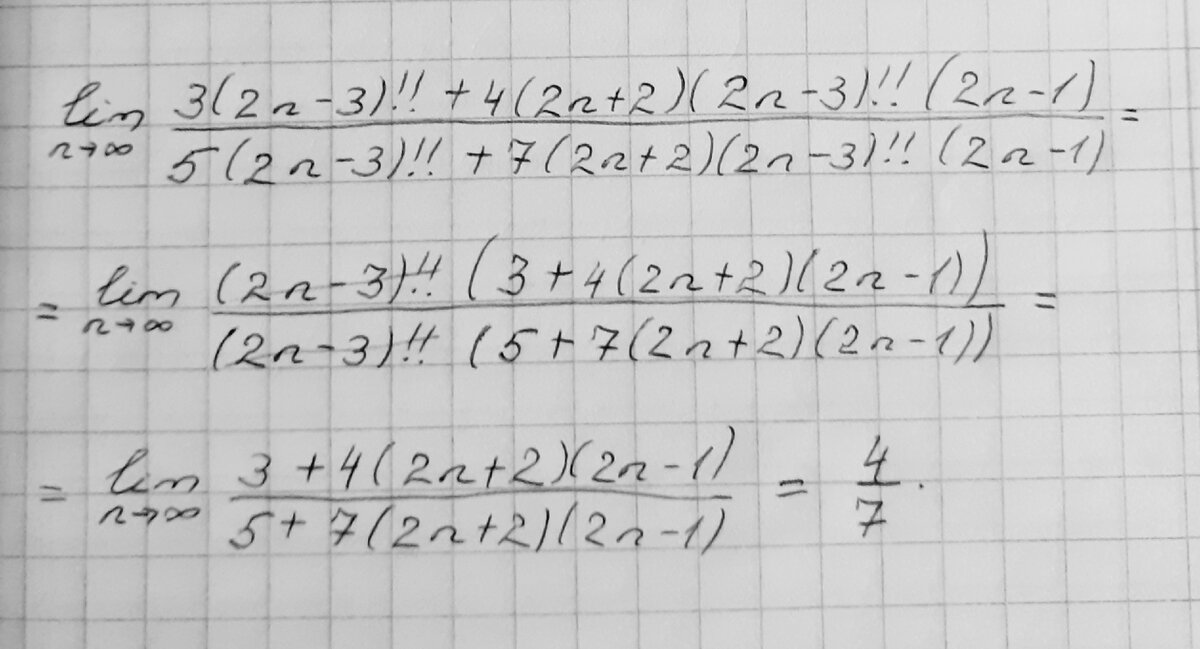 lim n→∞ (3(2n-3)!! + 4(2n+2)(2n-3)!!(2n-1)) / (5(2n-3)!! + 7(2n+2)(2n-3)!!(2n-1)) =
= lim n→∞ ((2n-3)!! (3+4(2n+2)(2n-1))) / ((2n-3)!! (5+7(2n+2)(2n-1))) =
= lim n→∞ (3+4(2n+2)(2n-1)) / (5+7(2n+2)(2n-1)) = 4/7.